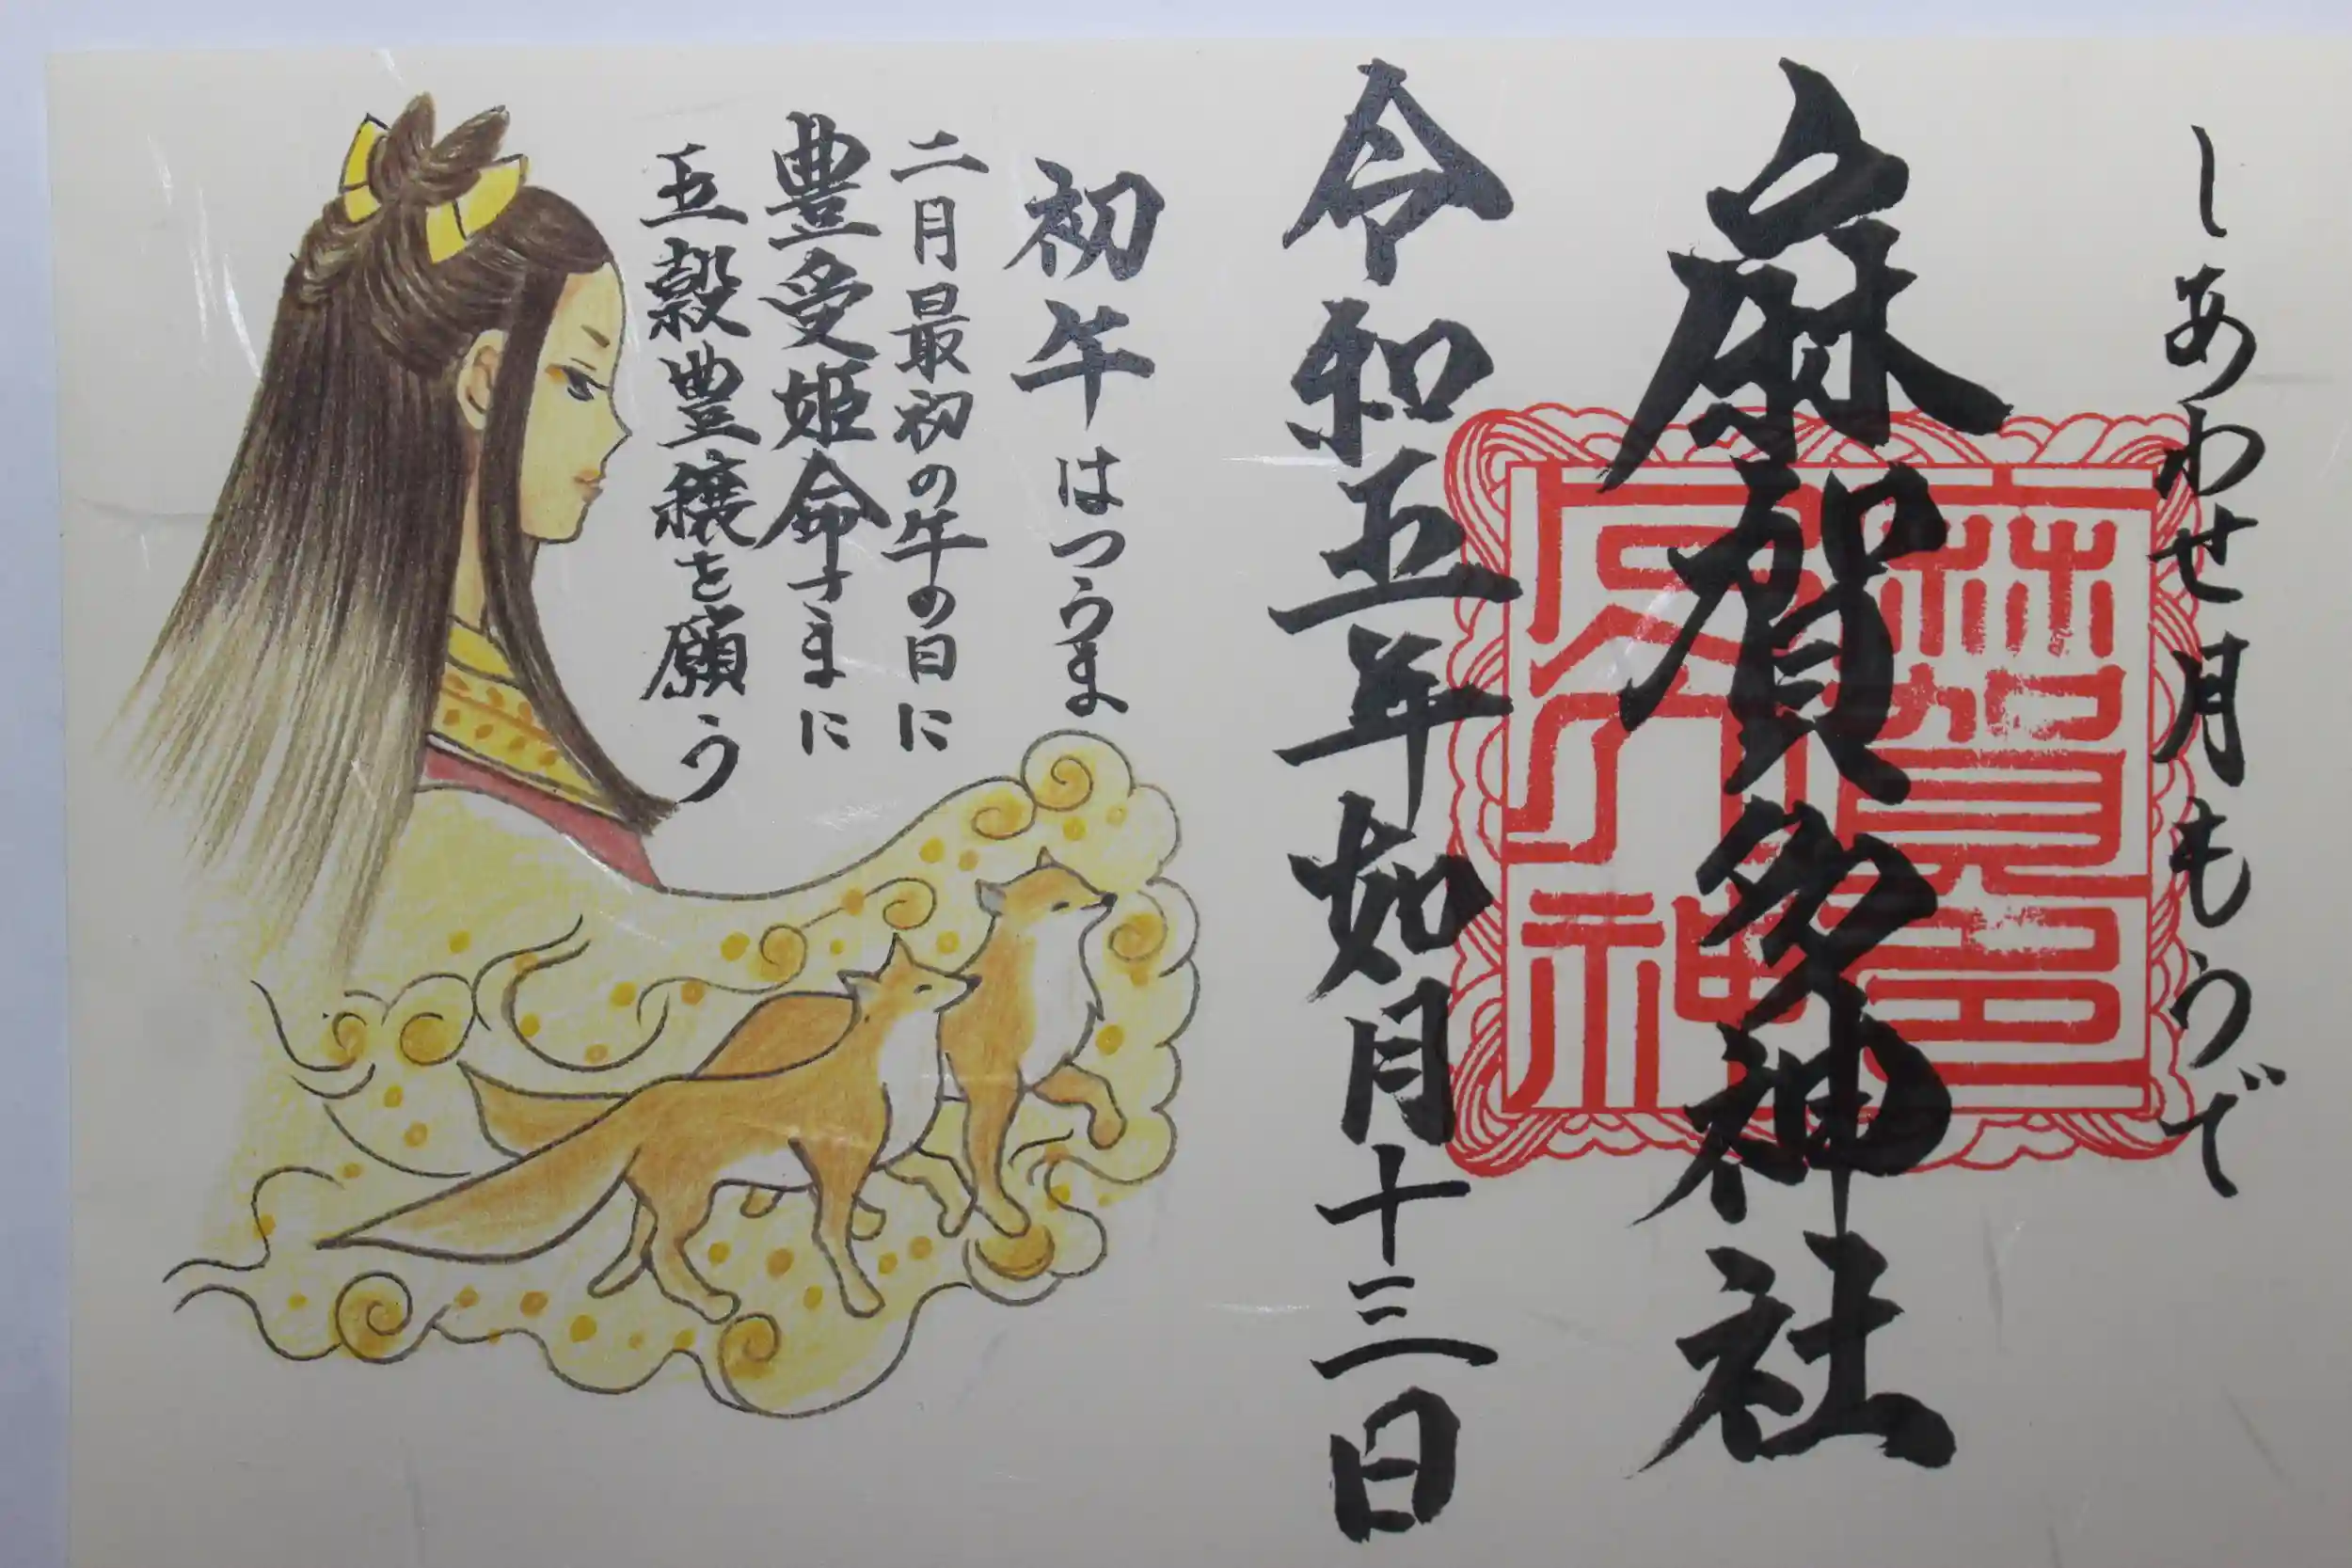 しあわせ月もうで
麻賀多神社
令和五年如月十三日
初午 はつうま
二月最初の午の日に
豊受姫命さまに
五穀豊穣を願う